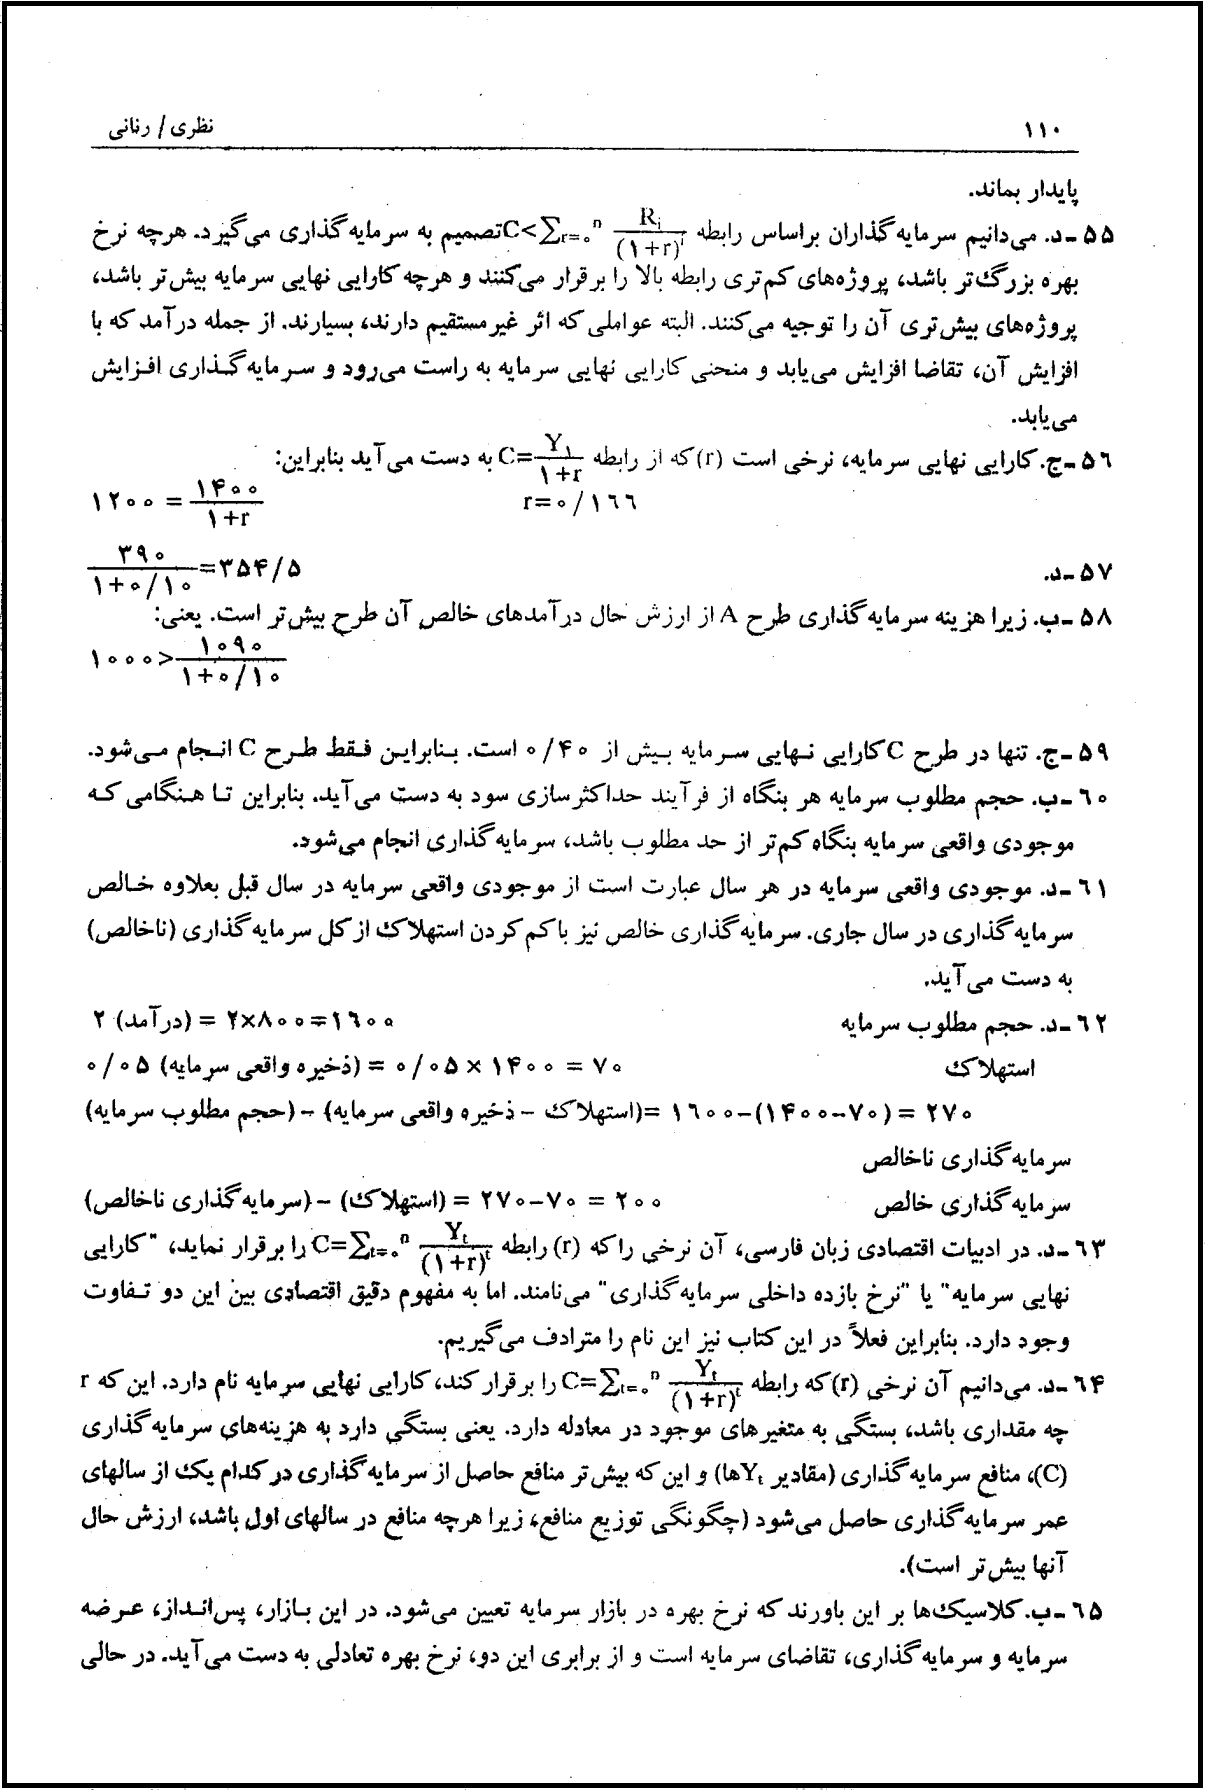 ۱۱۰
نظری / رنانی
پایدار بماند.
۵۵ -د. می‌دانیم سرمایه‌گذاران براساس رابطه C<∑r=۰ⁿ Rᵢ/(۱+r)ⁱ تصمیم به سرمایه‌گذاری می‌گیرد. هرچه نرخ
بهره بزرگ‌تر باشد، پروژه‌های کم‌تری رابطه بالا را برقرار می‌کنند و هرچه کارایی نهایی سرمایه بیش‌تر باشد،
پروژه‌های بیش‌تری آن را توجیه می‌کنند. البته عواملی که اثر غیرمستقیم دارند، بسیارند. از جمله درآمد که با
افزایش آن، تقاضا افزایش می‌یابد و منحنی کارایی نهایی سرمایه به راست می‌رود و سرمایه‌گذاری افزایش
می‌یابد.
۵۶ -ج. کارایی نهایی سرمایه، نرخی است (r) که از رابطه C=Y۱/(۱+r) به دست می‌آید بنابراین:
۱۲۰۰ = ۱۴۰۰/(۱+r) r=۰/۱۶۶
۵۷ -د. ۳۹۰/(۱+۰/۱۰)=۳۵۴/۵
۵۸ -ب. زیرا هزینه سرمایه‌گذاری طرح A از ارزش حال درآمدهای خالص آن طرح بیش‌تر است. یعنی:
۱۰۰۰>۱۰۹۰/(۱+۰/۱۰)
۵۹ -ج. تنها در طرح C کارایی نهایی سرمایه بیش از ۰/۴۰ است. بنابراین فقط طرح C انجام می‌شود.
۶۰ -ب. حجم مطلوب سرمایه هر بنگاه از فرآیند حداکثرسازی سود به دست می‌آید. بنابراین تا هنگامی که
موجودی واقعی سرمایه بنگاه کم‌تر از حد مطلوب باشد، سرمایه‌گذاری انجام می‌شود.
۶۱ -د. موجودی واقعی سرمایه در هر سال عبارت است از موجودی واقعی سرمایه در سال قبل بعلاوه خالص
سرمایه‌گذاری در سال جاری. سرمایه‌گذاری خالص نیز با کم کردن استهلاک از کل سرمایه‌گذاری (ناخالص)
به دست می‌آید.
۶۲ -د. حجم مطلوب سرمایه ۲ (درآمد) = ۲×۸۰۰=۱۶۰۰
استهلاک ۰/۰۵ (ذخیره واقعی سرمایه) = ۰/۰۵ × ۱۴۰۰ = ۷۰
(حجم مطلوب سرمایه) – (ذخیره واقعی سرمایه – استهلاک)= ۱۶۰۰–(۱۴۰۰–۷۰) = ۲۷۰
سرمایه‌گذاری ناخالص
سرمایه‌گذاری خالص (سرمایه‌گذاری ناخالص) – (استهلاک) = ۲۷۰–۷۰ = ۲۰۰
۶۳ -د. در ادبیات اقتصادی زبان فارسی، آن نرخی را که (r) رابطه C=∑t=۰ⁿ Yₜ/(۱+r)ᵗ را برقرار نماید، "کارایی
نهایی سرمایه" یا "نرخ بازده داخلی سرمایه‌گذاری" می‌نامند. اما به مفهوم دقیق اقتصادی بین این دو تفاوت
وجود دارد. بنابراین فعلاً در این کتاب نیز این نام را مترادف می‌گیریم.
۶۴ -د. می‌دانیم آن نرخی (r) که رابطه C=∑t=۰ⁿ Yₜ/(۱+r)ᵗ را برقرار کند، کارایی نهایی سرمایه نام دارد. این که r
چه مقداری باشد، بستگی به متغیرهای موجود در معادله دارد. یعنی بستگی دارد به هزینه‌های سرمایه‌گذاری
(C)، منافع سرمایه‌گذاری (مقادیر Yₜها) و این که بیش‌تر منافع حاصل از سرمایه‌گذاری در کدام یک از سالهای
عمر سرمایه‌گذاری حاصل می‌شود (چگونگی توزیع منافع، زیرا هرچه منافع در سالهای اول باشد، ارزش حال
آنها بیش‌تر است).
۶۵ -ب. کلاسیک‌ها بر این باورند که نرخ بهره در بازار سرمایه تعیین می‌شود. در این بازار، پس‌انداز، عرضه
سرمایه و سرمایه‌گذاری، تقاضای سرمایه است و از برابری این دو، نرخ بهره تعادلی به دست می‌آید. در حالی